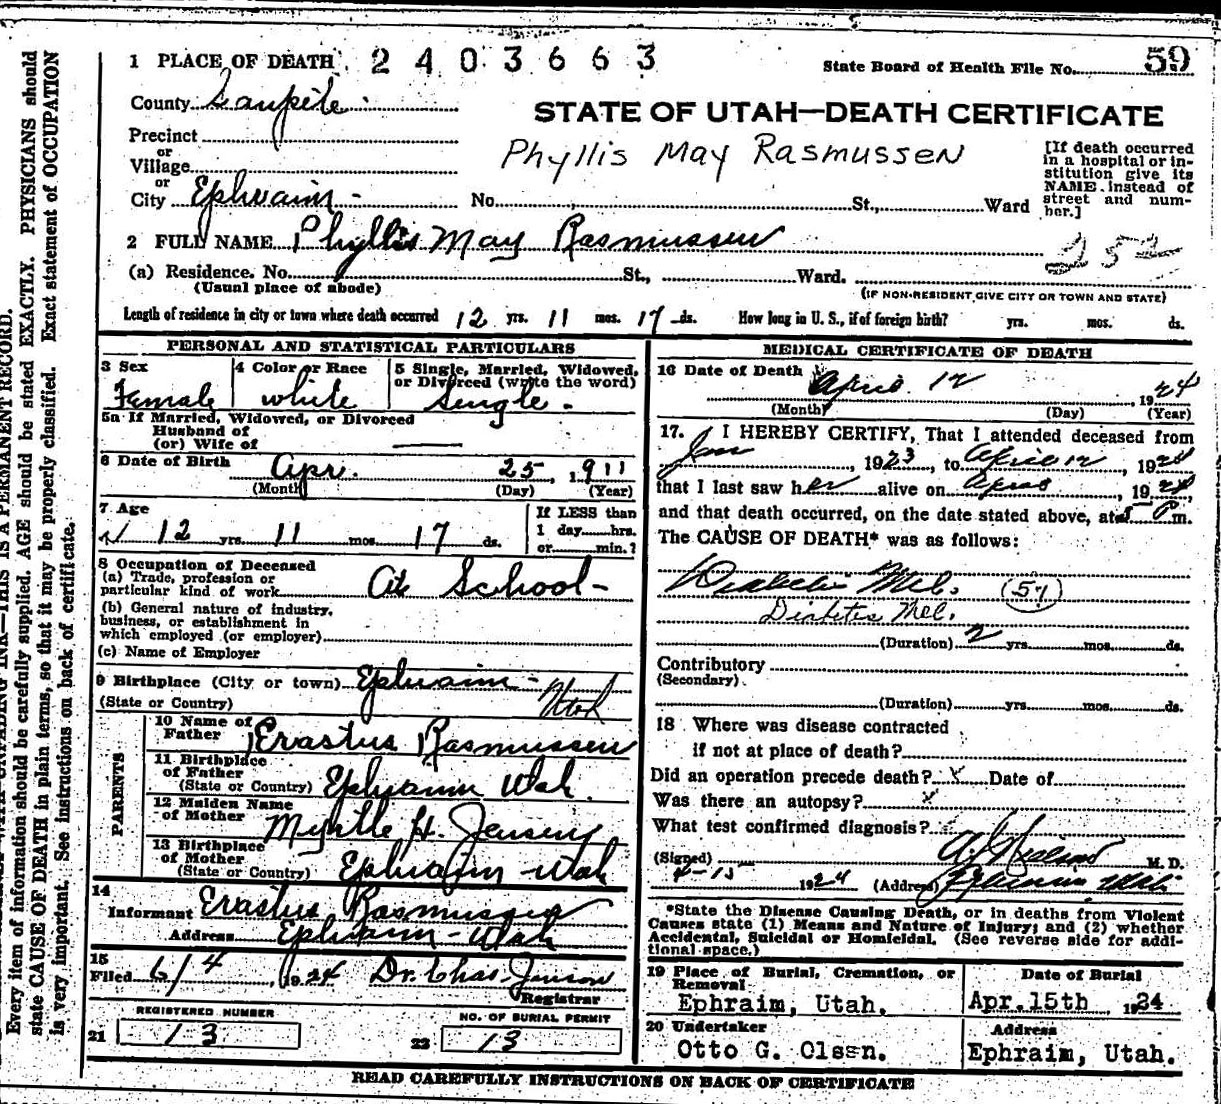 1 PLACE OF DEATH 2403663
State Board of Health File No. 59
County Sanpete
STATE OF UTAH—DEATH CERTIFICATE
Precinct
or
Village
or
City Ephraim No. St., Ward
Phyllis May Rasmussen
[If death occurred
in a hospital or in-
stitution give its
NAME instead of
street and num-
ber.]
2 FULL NAME Phyllis May Rasmussen
252
(a) Residence. No. St., Ward.
(Usual place of abode)
(IF NON-RESIDENT GIVE CITY OR TOWN AND STATE)
Length of residence in city or town where death occurred 12 yrs. 11 mos. 17 ds. How long in U. S., if of foreign birth? yrs. mos. ds.
PERSONAL AND STATISTICAL PARTICULARS
3 Sex
Female
4 Color or Race
white
5 Single, Married, Widowed,
or Divorced (write the word)
Single
5a If Married, Widowed, or Divorced
Husband of
(or) Wife of
6 Date of Birth Apr. 25, 1911
(Month) (Day) (Year)
7 Age
12 yrs. 11 mos. 17 ds.
If LESS than
1 day hrs.
or min.?
8 Occupation of Deceased
(a) Trade, profession or
particular kind of work At School
(b) General nature of industry,
business, or establishment in
which employed (or employer)
(c) Name of Employer
9 Birthplace (City or town) Ephraim
(State or Country) Utah
PARENTS
10 Name of
Father Erastus Rasmussen
11 Birthplace
of Father
(State or Country) Ephraim Utah.
12 Maiden Name
of Mother Myrtle H. Jensen
13 Birthplace
of Mother
(State or Country) Ephraim Utah
14
Informant Erastus Rasmussen
Address Ephraim - Utah
15
Filed 6/4, 1924 Dr. Chas. Jenson
Registrar
REGISTERED NUMBER
21 13
NO. OF BURIAL PERMIT
22 13
MEDICAL CERTIFICATE OF DEATH
16 Date of Death April 12, 1924
(Month) (Day) (Year)
17. I HEREBY CERTIFY, That I attended deceased from
Jan, 1923, to April 12, 1924
that I last saw her alive on April, 1924,
and that death occurred, on the date stated above, at P m.
The CAUSE OF DEATH* was as follows:
Diabetis Mel. (57)
Diabetes Mel.
(Duration) 2 yrs. mos. ds.
Contributory
(Secondary)
(Duration) yrs. mos. ds.
18 Where was disease contracted
if not at place of death?
Did an operation precede death? x Date of
Was there an autopsy? x
What test confirmed diagnosis?
(Signed) M. D.
4-15 1924 (Address) Ephraim Utah
*State the Disease Causing Death, or in deaths from Violent
Causes state (1) Means and Nature of Injury; and (2) whether
Accidental, Suicidal or Homicidal. (See reverse side for addi-
tional space.)
19 Place of Burial, Cremation, or
Removal
Ephraim, Utah.
Date of Burial
Apr. 15th, 1924
20 Undertaker
Otto G. Olsen.
Address
Ephraim, Utah.
READ CAREFULLY INSTRUCTIONS ON BACK OF CERTIFICATE
THIS IS A PERMANENT RECORD.
Every item of information should be carefully supplied. AGE should be stated EXACTLY. PHYSICIANS should
state CAUSE OF DEATH in plain terms, so that it may be properly classified. Exact statement of OCCUPATION
is very important. See instructions on back of certificate.